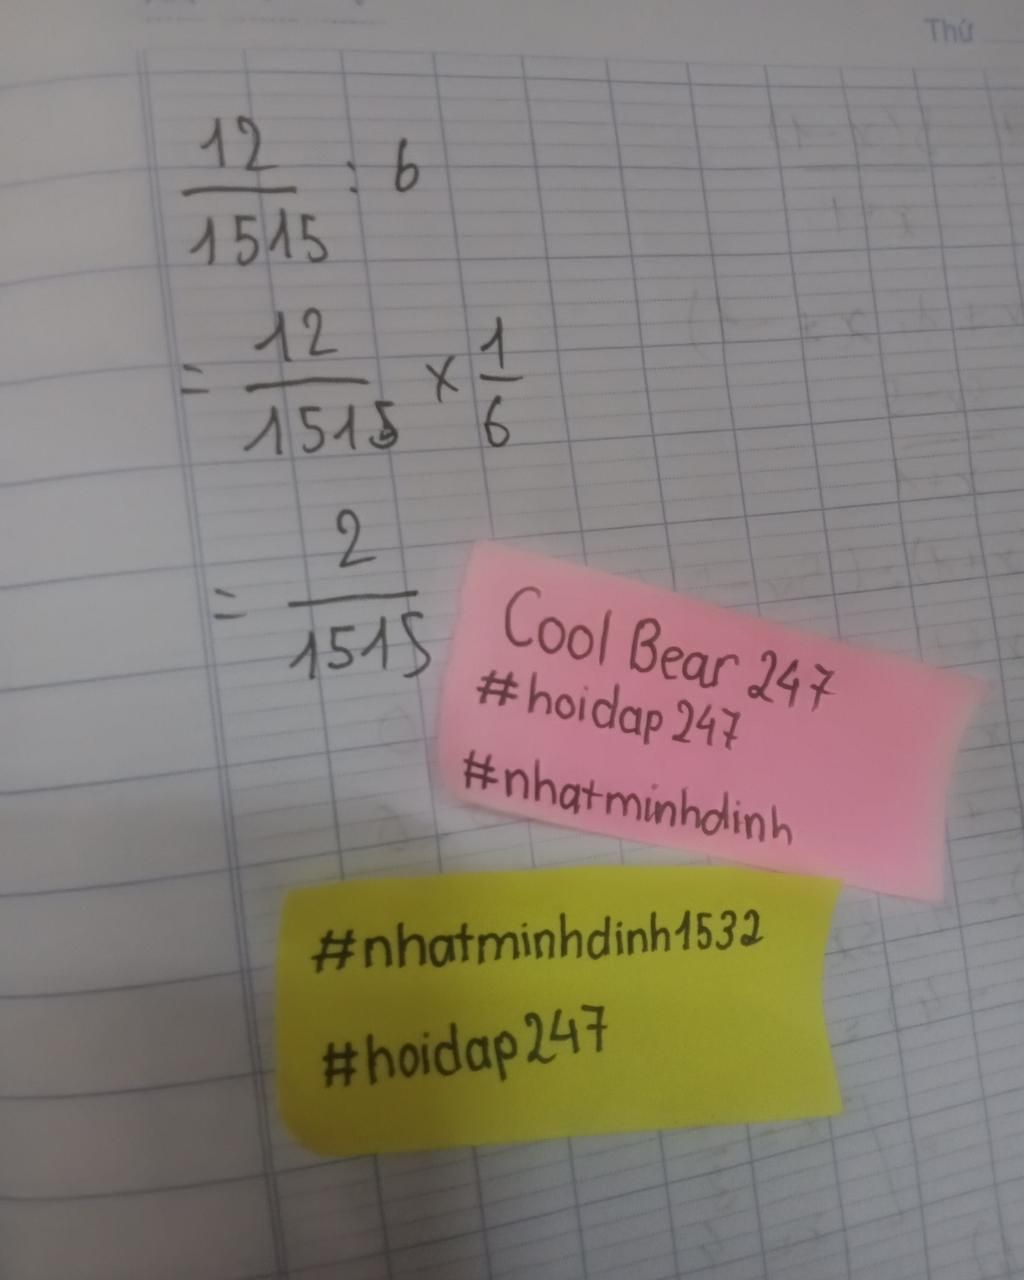 Thứ
12
1515 : 6
= 12/1515 × 1/6
= 2/1515
Cool Bear 247
#hoidap247
#nhatminhdinh
#nhatminhdinh1532
#hoidap247